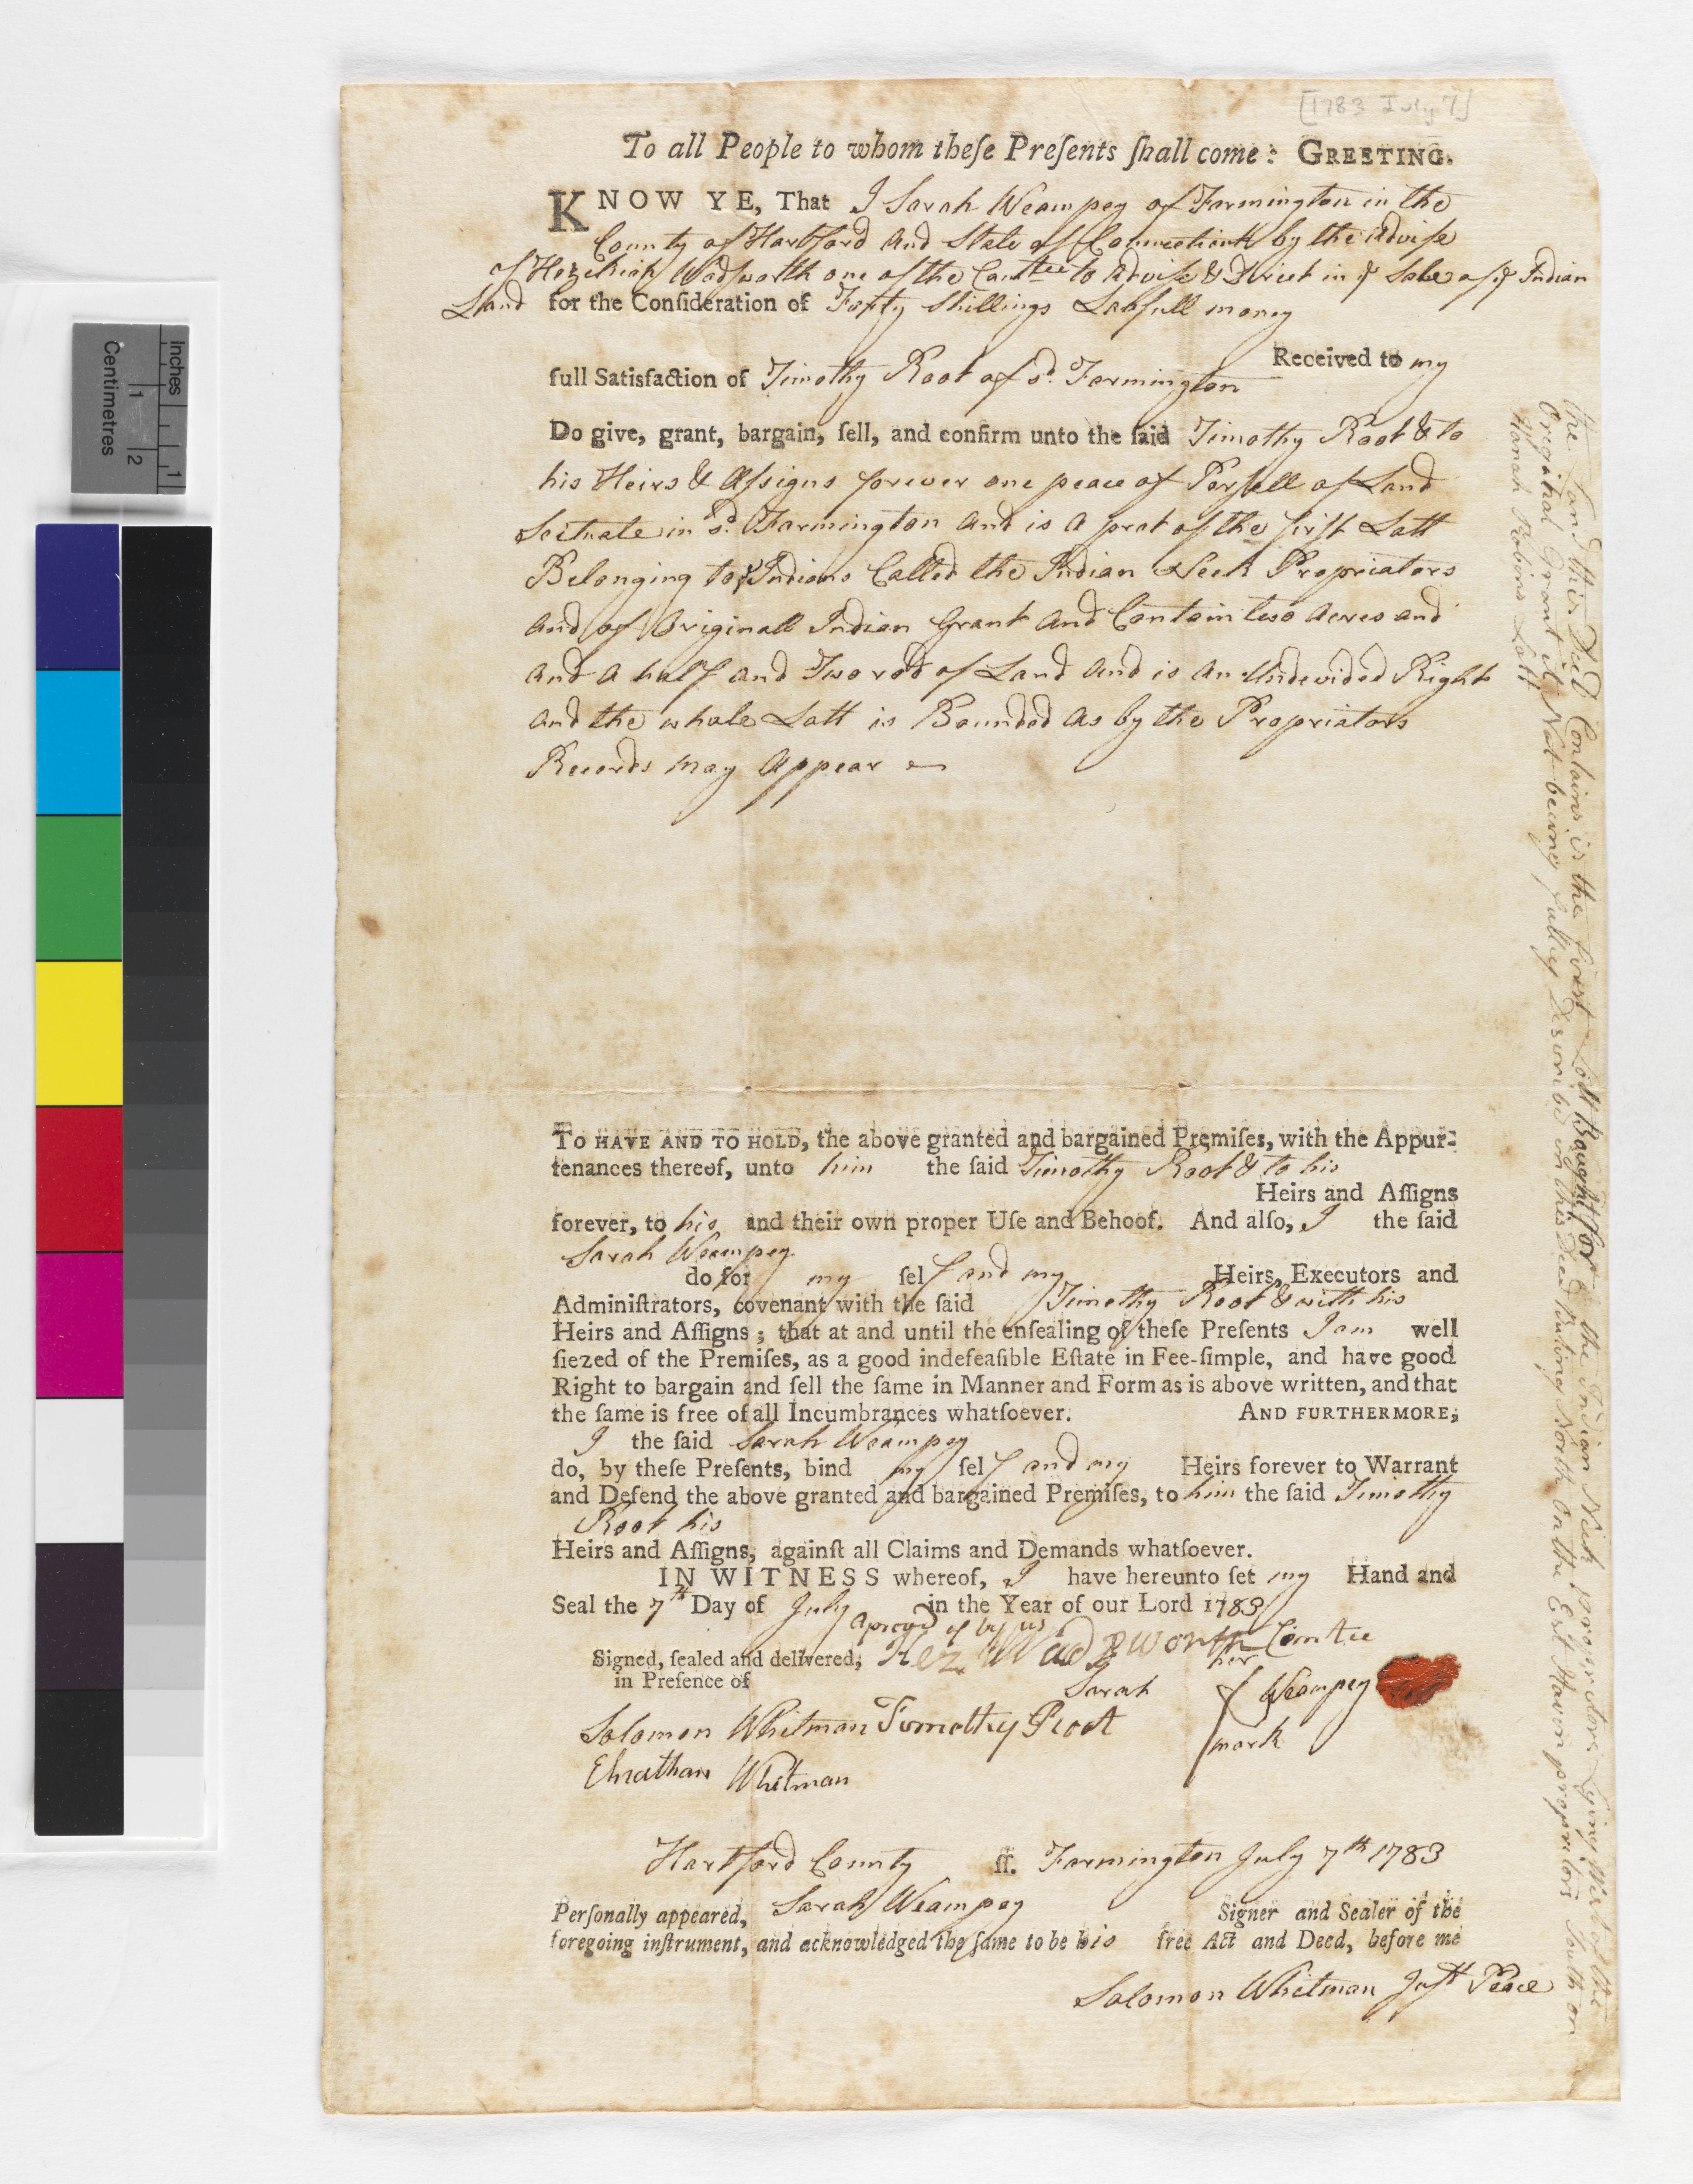 [1783 July 7]
To all People to whom theſe Preſents ſhall come: GREETING.
KNOW YE, That I Sarah Weampey of Farmington in the
County of Hartford and State of Connecticutt by the Adviſe
of Hezekiah Wadſworth one of the Comtee to Adviſe & Direct in ye Sale of ye Indian
Land for the Conſideration of Forty Shillings Lawfull money
Received to my
full Satisfaction of Timothy Root of sd. Farmington
Do give, grant, bargain, ſell, and confirm unto the ſaid Timothy Root & to
his Heirs & Aſsigns forever one peace of Parſell of Land
Scituate in sd. Farmington and is a prat of the firſt Lott
Belonging to ye Indians Called the Indian Neck Propriators
and of Originall Indian Grant and Contain two Acres and
and a half and Two rod of Land and is an Undevided Right
and the whole Lott is Bounded as by the Propriators
Records may Appear
TO HAVE AND TO HOLD, the above granted and bargained Premiſes, with the Appur-
tenances thereof, unto him the ſaid Timothy Root & to his
Heirs and Aſſigns
forever, to his and their own proper Uſe and Behoof. And alſo, I the ſaid
Sarah Weampey
do for my ſelf and my Heirs, Executors and
Adminiſtrators, covenant with the ſaid Timothy Root & with his
Heirs and Aſſigns; that at and until the enſealing of theſe Preſents I am well
ſiezed of the Premiſes, as a good indefeaſible Eſtate in Fee-ſimple, and have good
Right to bargain and ſell the ſame in Manner and Form as is above written, and that
the ſame is free of all Incumbrances whatſoever. AND FURTHERMORE,
I the ſaid Sarah Weampey
do, by theſe Preſents, bind my ſelf and my Heirs forever to Warrant
and Defend the above granted and bargained Premiſes, to him the ſaid Timothy
Root his
Heirs and Aſſigns, againſt all Claims and Demands whatſoever.
IN WITNESS whereof, I have hereunto ſet my Hand and
Seal the 7th Day of July in the Year of our Lord 1783
Aproved of by us
Hez Wadsworth Comtee
Signed, ſealed and delivered,
in Preſence of
her
Sarah Weampey
mark
Solomon Whitman Timothy Root
Elnathan Whitman
Hartford County ſſ. Farmington July 7th 1783
Perſonally appeared, Sarah Weampey Signer and Sealer of the
foregoing inſtrument, and acknowledged the ſame to be his free Act and Deed, before me
Solomon Whitman Juſt Peace
the Land this Deed Contains is the first Lott Baught for the Indian Neck propriators Lying West of the
Original Grant it Not being fully Described in this Deed Buting North on the Est Haven propriators South on
Hanah Robins Lott
Inches
1
Centimetres
1
2